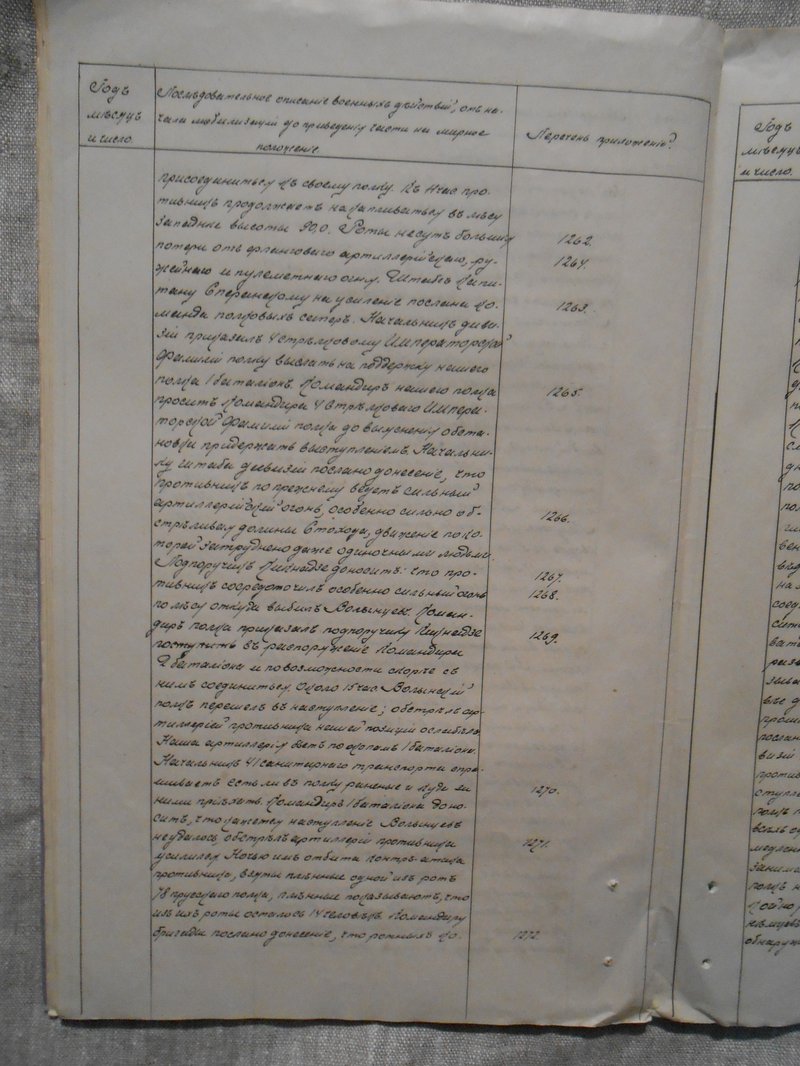 Годъ
мѣсяцъ
и число.
Послѣдовательное описаніе военныхъ дѣйствій, отъ на-
чала мобилизаціи до приведенія части на мирное
положеніе.
Перечень приложеній.
присоединиться къ своему полку. Къ 4 час про-
тивникъ продолжаетъ накапливаться въ лѣсу
западнѣе высоты 90,0. Роты несутъ большія
1262.
потери отъ флангового артиллерійскаго, ру-
1264.
жейнаго и пулеметнаго огня. Штабсъ Капи-
тану Сперанскому на усиленіе послана ко-
1263.
манда полковыхъ саперъ. Начальникъ диви-
зіи приказалъ 4 стрѣлковому Императорской
Фамиліи полку выслать на поддержку нашего
полка 1 баталіонъ. Командиръ нашего полка
1265.
проситъ Командира 4 Стрѣлковаго Импера-
торской Фамиліи полка до выясненія обста-
новки придержать выступленіемъ. Начальни-
ку штаба дивизіи послано донесеніе, что
противникъ по прежнему ведетъ сильный
артиллерійскій огонь, особенно сильно об-
1266.
стрѣливая долины Стохода, движеніе по ко-
торой затруднено даже одиночными людьми.
Подпоручикъ доноситъ: что про-
1267.
тивникъ сосредоточилъ особенно сильный огонь
1268.
по лѣсу откуда выбилъ Волынцевъ. Коман-
диръ полка приказалъ подпоручику
1269.
поступить въ распоряженіе Командира
2 баталіона и по возможности скорѣе съ
нимъ соединиться. Около 15 час Волынскій
полкъ перешелъ въ наступленіе; обстрѣлъ ар-
тиллеріей противника нашей позиціи ослабѣлъ.
Наша артиллерія бьетъ по окопамъ 1 баталіона.
Начальникъ 41 санитарнаго транспорта спра-
шиваетъ есть ли въ полку раненые и куда за
1270.
ними пріѣхать. Командиръ 1 баталіона доно-
ситъ, что кажется наступленіе Волынцевъ
неудалось, обстрѣлъ артиллеріи противника
1271.
усилился. Ночью имъ отбита контръ-атака
противника, взяты плѣнные одной изъ ротъ
78 прусскаго полка, плѣнные показываютъ, что
изъ ихъ роты осталось 14 человѣкъ. Командиру
бригады послано донесеніе, что ротныхъ ко-
1272.
Годъ
мѣсяцъ
и число.